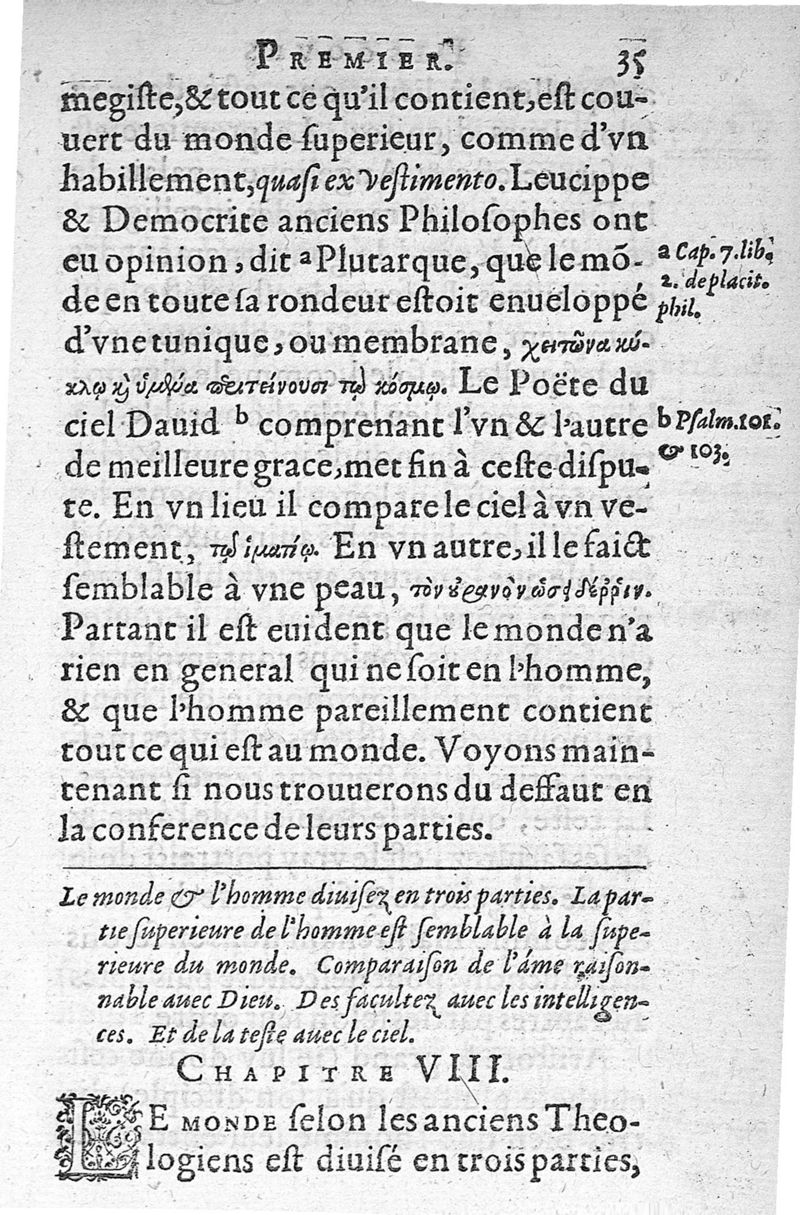 PREMIER. 35
megiste,& tout ce qu'il contient,est cou-
uert du monde superieur, comme d'vn
habillement,quasi ex vestimento. Leucippe
& Democrite anciens Philosophes ont
eu opinion, dit ᵃ Plutarque, que le mō-
de en toute sa rondeur estoit enueloppé
d'vne tunique, ou membrane, χειτῶνα κύ-
κλῳ ϗ ὑμένα περιτείνουσι τῷ κόσμῳ. Le Poëte du
ciel Dauid ᵇ comprenant l'vn & l'autre
de meilleure grace,met fin à ceste dispu-
te. En vn lieu il compare le ciel à vn ve-
stement, τῷ ἱματίῳ. En vn autre, il le faict
semblable à vne peau, τὸν οὐρανὸν ὡσεὶ δέῤῥιν.
Partant il est euident que le monde n'a
rien en general qui ne soit en l'homme,
& que l'homme pareillement contient
tout ce qui est au monde. Voyons main-
tenant si nous trouuerons du deffaut en
la conference de leurs parties.
a Cap. 7. lib.
2. de placit.
phil.
b Psalm. 101.
& 103.
Le monde & l'homme diuisez en trois parties. La par-
tie superieure de l'homme est semblable à la supe-
rieure du monde. Comparaison de l'âme raison-
nable auec Dieu. Des facultez auec les intelligen-
ces. Et de la teste auec le ciel.
CHAPITRE VIII.
LE MONDE selon les anciens Theo-
logiens est diuisé en trois parties,